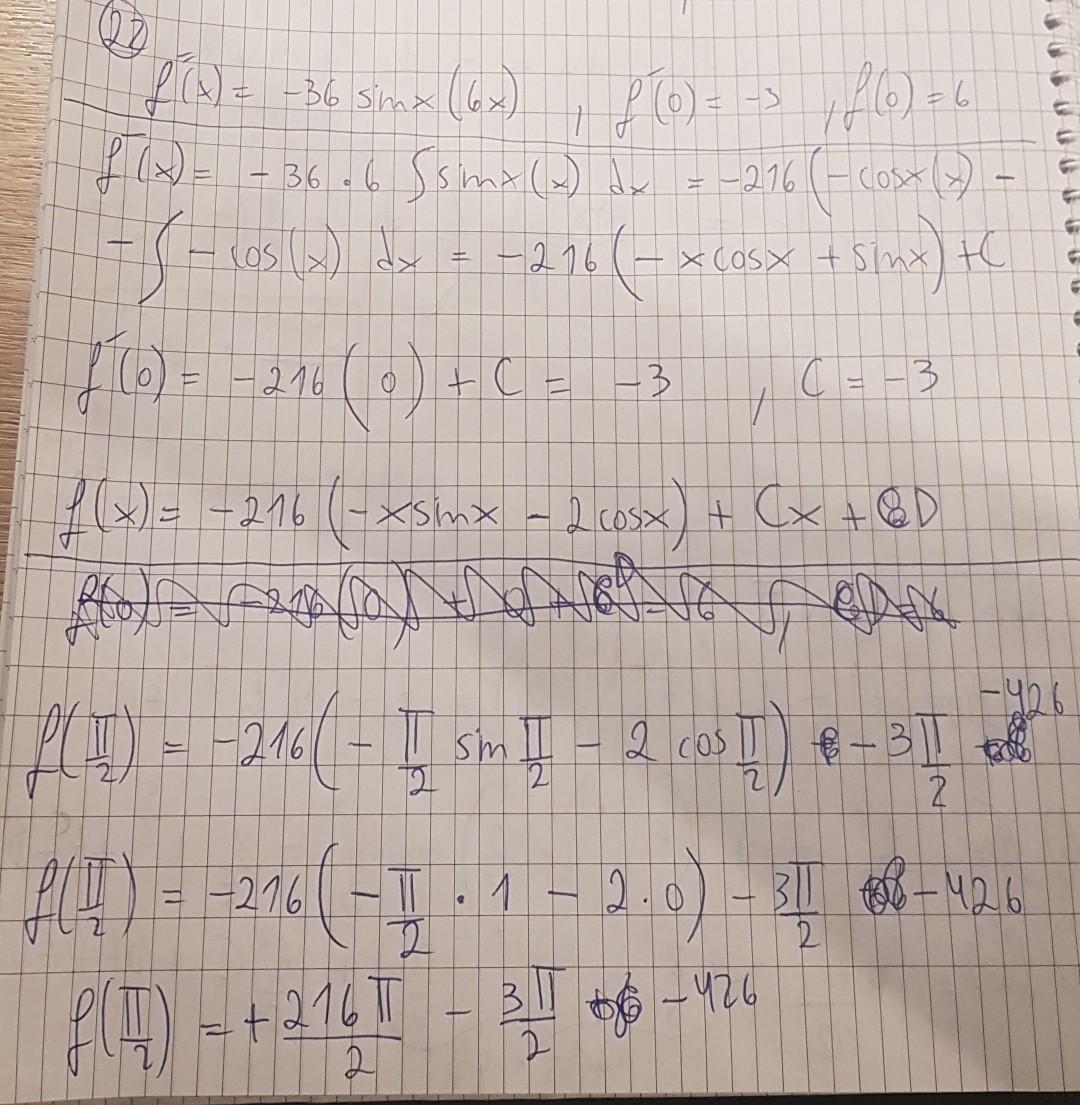 22
f''(x) = -36 sinx (6x) , f'(0) = -3 , f(0) = 6
f'(x) = -36 . 6 ∫ sinx(x) dx = -216 (- cosx(x) -
- ∫ - cos(x) dx = -216 (- xcosx + sinx) + C
f'(0) = -216 ( 0 ) + C = -3 , C = -3
f(x) = -216 (- xsinx - 2cosx) + Cx + D
f(π/2) = -216 (- π/2 sin π/2 - 2 cos π/2) - 3π/2 -426
f(π/2) = -216 (- π/2 · 1 - 2.0) - 3π/2 -426
f(π/2) = + 216π/2 - 3π/2 -426